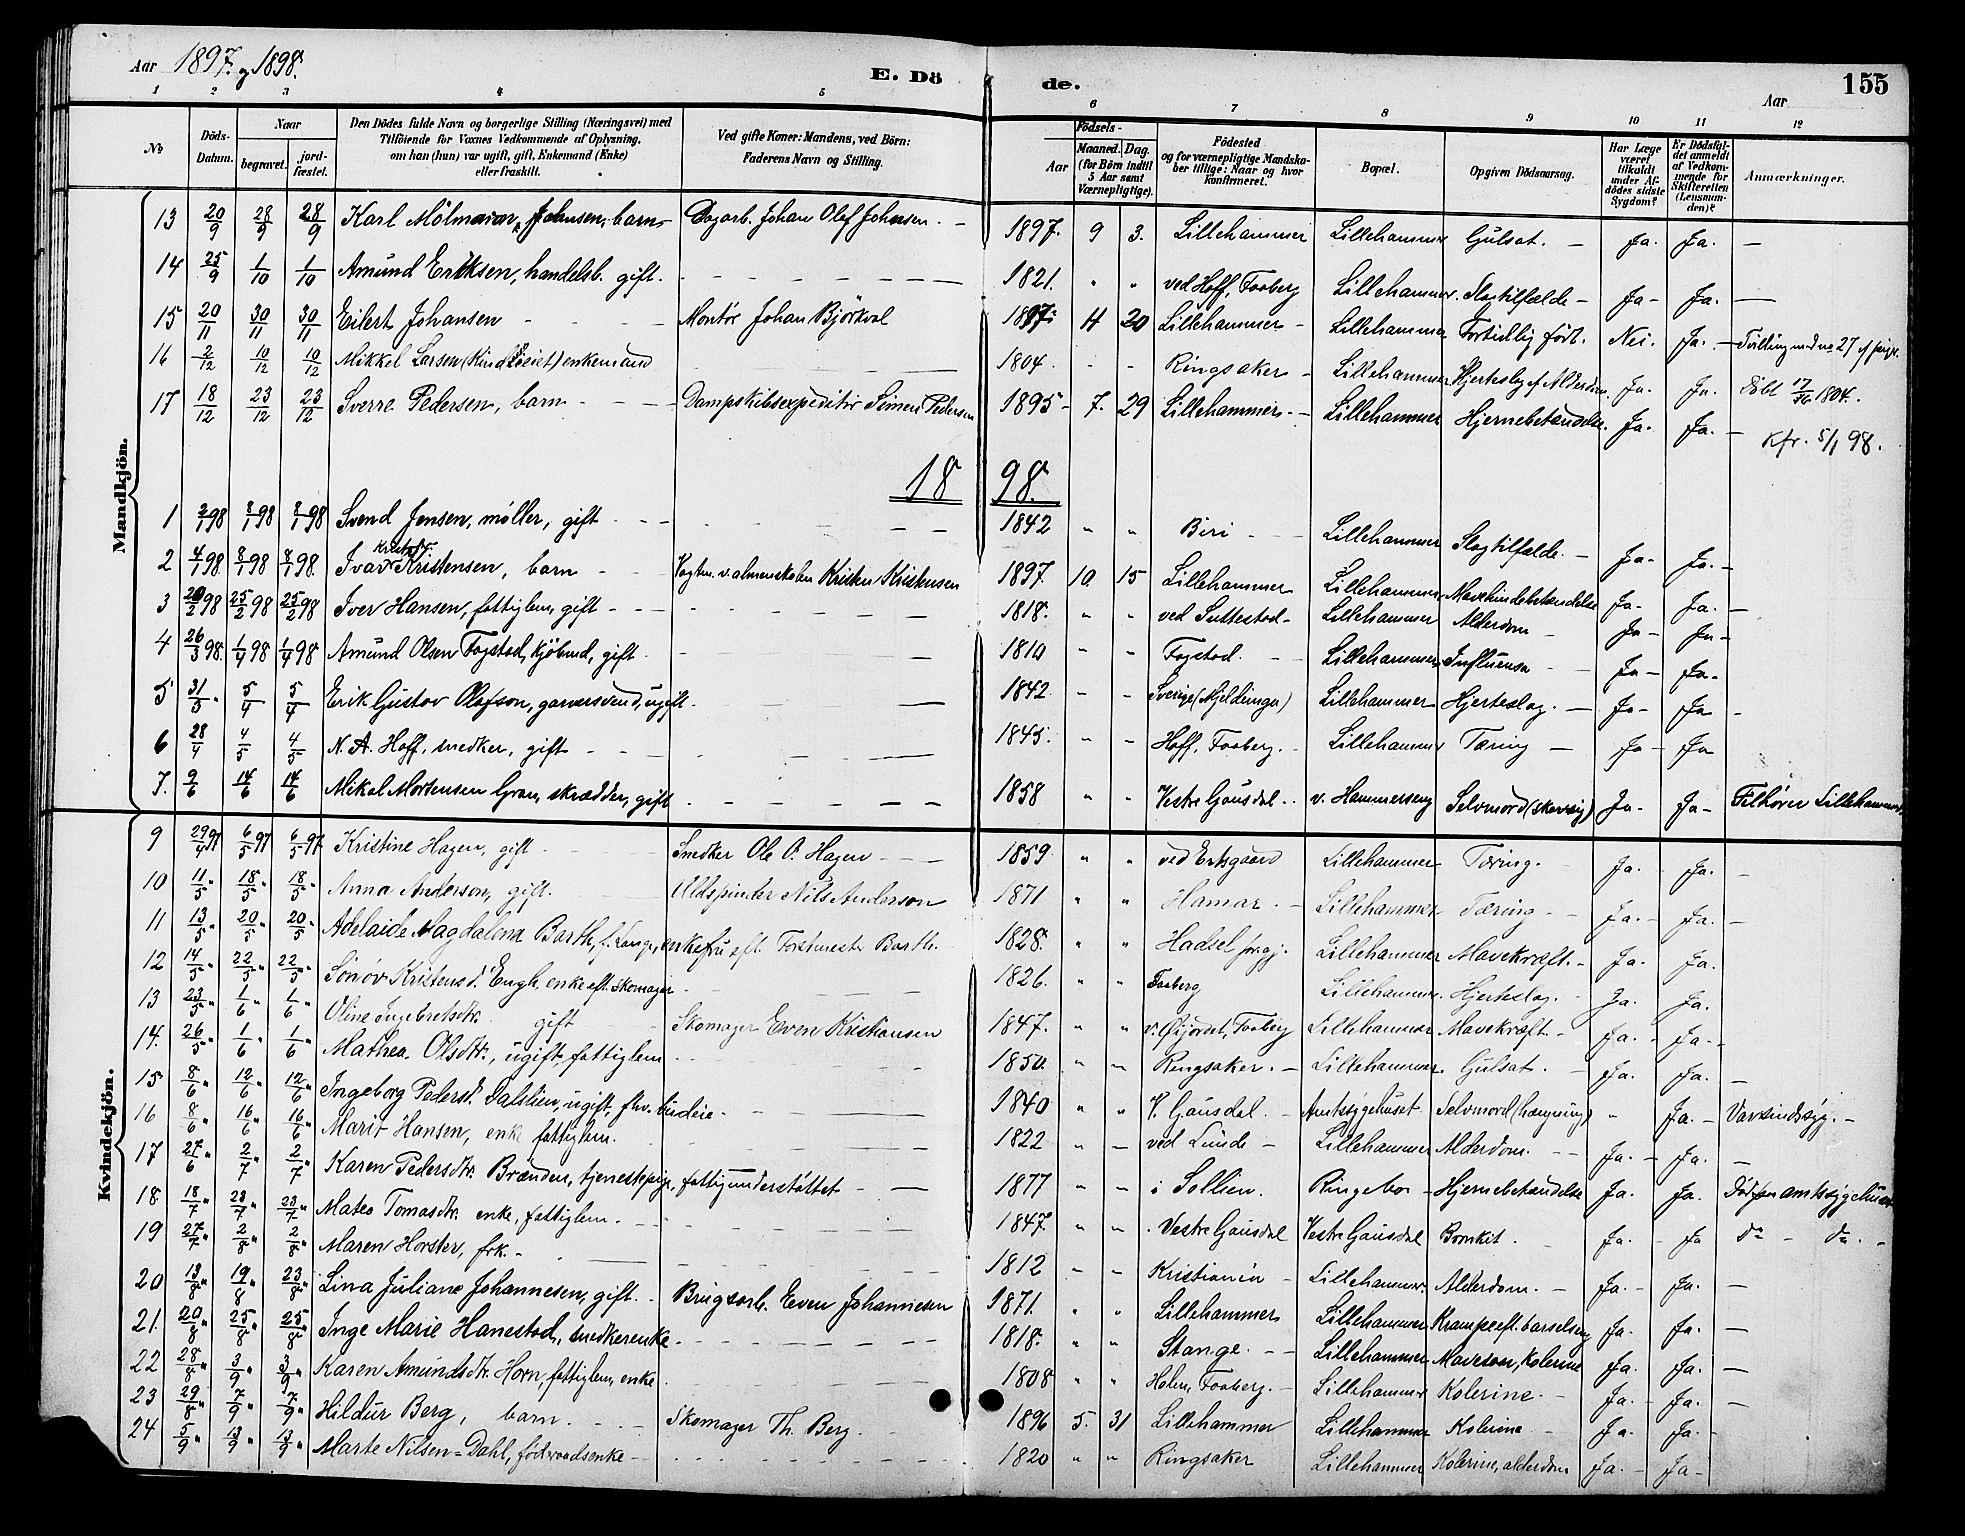 Aar 1897 og 1898.
E. Dö de.
Aar
155
1 2 3 4 5 6 7 8 9 10 11 12
No
Döds-Datum.
Naar
begravet.
jord-fæstet.
Den Dödes fulde Navn og borgerlige Stilling (Næringsvei) med
Tilföiende for Voxnes Vedkommende af Oplysning,
om han (hun) var ugift, gift, Enkemand (Enke)
eller fraskilt.
Ved gifte Koner: Mandens, ved Börn:
Faderens Navn og Stilling.
Födsels-
Aar
Maaned. Dag.
(for Börn indtil
5 Aar samt
Værnepligtige).
Födested
og for værnepligtige Mandska-
ber tillige: Naar og hvor
konfirmeret.
Bopæl.
Opgiven Dödsaarsag.
Har Læge
været
tilkaldt
under Af-
dödes sidste
Sygdom?
Er Dödsfal-
det anmeldt
af Vedkom-
mende for
Skifteretten
(Lensman-
den)?
Anmærkninger.
Mandkjön.
13 20/9 28/9 28/9 Karl Johnsen, barn Dagarb. Johan Olaf Johnsen. 1897. 9 3. Lillehammer Lillehammer Gulsot. Ja. Ja. —
14 25/9 1/10 1/10 Amund Eriksen, handelsb. gift. 1821. " " ved Hoff, Faaberg Lillehammer. Slagtilfælde Ja Ja. —
15 20/11 30/11 30/11 Eilert Johansen Montør Johan Björkvol 1897. 11 20 Lillehammer Lillehammer Fortidlig födt. Nei. Ja. Tvilling med no 27 af
16 2/12 10/12 10/12 Mikkel Larsen enkemand 1804. - - Ringsaker Lillehammer Hjerteslag af Alderdom. Ja. Ja. Döbt 1804.
17 18/12 23/12 23/12 Sverre Pedersen, barn Dampskibsexpeditör Simen Pedersen 1895 7. 29 Lillehammer Lillehammer Hjernebetændelse. Ja. Ja. — Kfr. 5/1 98.
1898.
1 98 8/1 98 8/1 98 Svend Jensen, møller, gift 1842 " " Biri Lillehammer Slagtilfælde. Ja Ja. —
2 4/1 98 8/1 98 8/1 98 Ivar Kristensen, barn Vagtm. v. almenskolen Kristen Kristensen 1897. 10. 15 Lillehammer Lillehammer Mavehindebetændelse Ja Ja. —
3 20/2 98 25/2 98 25/2 98 Iver Hansen, fattiglem, gift 1818. " " ved Suttestad Lillehammer Alderdom Ja Ja
4 26/3 98. 1/4 98 1/4 98 Amund Olsen Fogstad, kjöbmd, gift 1810 " " Fogstad. Lillehammer Influensa Ja Ja
5 31/3 " 5/4 5/4 Erik Gustav Olofson, garversvend, ugift. 1842 - - Sverige Lillehammer Hjerteslag. Ja Ja
6 28/4 4/5 4/5 N. A. Hoff, snedker, gift 1845. " - Hoff, Faaberg. Lillehammer Tæring Ja Ja
7. 9/6 14/6 14/6 Mikal Mortensen Gran, skrædder, gift 1858 " " Vestre Gausdal v. Hammerseng Selvmord Ja. Ja Tilhörer Lillehammer
Kvindekjön.
9 29/4 97 6/5 97 6/5 97 Kristine Hagen, gift Snedker Ole O. Hagen 1859 " " ved Lillehammer Tæring. Ja. Ja. —
10 11/5 " 18/5 " 18/5 " Anna Anderson, gift. Uldspinder Nils Anderson 1871 " " Hamar Lillehammer Tæring Ja. Ja. —
11 13/5 " 20/5 " 20/5 " Adelaide Magdalena Barth, f. Lange, enkefru eft. Forstmester Barth. 1828. " " Hadsel prgj. Lillehammer Mavekræft. Ja. Ja.
12 14/5 " 22/5 " 22/5 " Sönöv Kristensd. Engh, enke eft. skomager 1826. " " Faaberg Lillehammer. Hjerteslag. Ja. Ja.
13 23/5 " 1/6 " 1/6 " Oline Ingebretsdtr. gift Skomager Even Kristiansen 1847. " " v. Öijordet, Faaberg Lillehammer Mavekræft. Ja. Ja.
14. 26/5 " 1/6 " 1/6 " Mathea Olsdtr., ugift, fattiglem 1850. " " Ringsaker. Lillehammer. Gulsot. Ja. Ja. —
15 8/6 " 12/6 " 12/6 " Ingeborg Pedersd. Dalslien, ugift, fhv. budeie 1840 " " V. Gausdal. Amtssygehuset. Selvmord (hængning) " Ja. Var sindssyg.
16 8/6 " 16/6 " 16/6 " Marit Hansen, enke fattiglem. 1822 " " ved Lunde Lillehammer Alderdom. Ja. Ja. —
17 27/6 " 2/7 " 2/7 " Karen Pedersdtr. Brænden, tjenestepige, fattigunderstöttet 1877 " " i Sollien. Ringebo Hjernebetændelse Ja. Ja. Död paa amtssygehuset
18. 18/7 " 23/7 " 23/7 " Mateo Tomasdtr. enke, fattiglem. 1847. " " Vestre Gausdal Vestre Gausdal Ja. Ja do do.
19 27/7 " 2/8 " 2/8 " Maren Horster, frk. 1812 " " Kristiania Lillehammer. Alderdom. Ja. Ja. —
20 13/8 " 19/8 " 23/8 " Lina Juliane Johannesen, gift. Brugsarb. Even Johannesen 1871. " " Lillehammer Lillehammer Krampe eft. barselseng Ja. Ja. —
21. 20/8 " 25/8 " 25/8 " Inge Marie Hanestad, snedkerenke 1818. " " Stange. Lillehammer Kolerine Ja. Ja. —
22 28/8 " 3/9 " 3/9 " Karen Amundsdtr. Horn, fattiglem, enke 1808 " " Holm, Faaberg. Lillehammer Kolerine. Ja. Ja. —
23 29/8 " 7/9 " 7/9 " Hildur Berg, barn. Skomager Th. Berg. 1896 5. 31 Lillehammer Lillehammer Kolerine Ja. Ja. —
24 5/9 " 13/9 " 13/9 " Marte Nilsen-Dahl, enke 1820 " " Ringsaker Lillehammer Kolerine, alderdom Ja. Ja